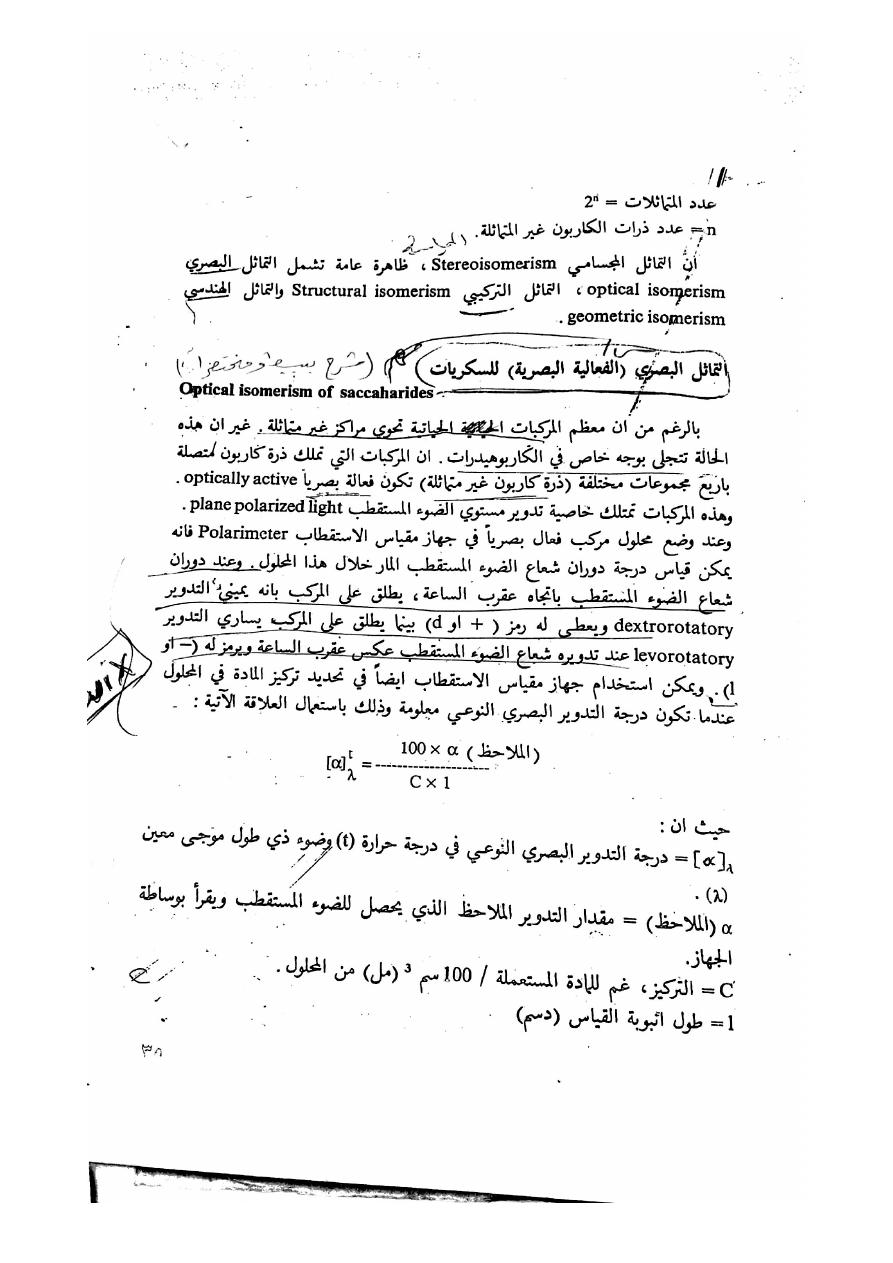 عدد المتماثلات = 2ⁿ
n = عدد ذرات الكاربون غير المتماثلة.
أن التماثل المجسامي Stereoisomerism ، ظاهرة عامة تشمل التماثل البصري
optical isomerism ، التماثل التركيبي Structural isomerism والتماثل الهندسي
geometric isomerism .
التماثل البصري (الفعالية البصرية) للسكريات
Optical isomerism of saccaharides
بالرغم من ان معظم المركبات الحياتية تحوي مراكز غير متماثلة . غير ان هذه
الحالة تتجلى بوجه خاص في الكاربوهيدرات . ان المركبات التي تملك ذرة كاربون متصلة
باربع مجموعات مختلفة (ذرة كاربون غير متماثلة) تكون فعالة بصرياً optically active .
وهذه المركبات تمتلك خاصية تدوير مستوي الضوء المستقطب plane polarized light .
وعند وضع محلول مركب فعال بصرياً في جهاز مقياس الاستقطاب Polarimeter فانه
يمكن قياس درجة دوران شعاع الضوء المستقطب المار خلال هذا المحلول . وعند دوران
شعاع الضوء المستقطب باتجاه عقرب الساعة ، يطلق على المركب بانه يميني التدوير
dextrorotatory ويعطى له رمز ( + او d) بينما يطلق على المركب يساري التدوير
levorotatory عند تدويره شعاع الضوء المستقطب عكس عقرب الساعة ويرمز له (– او
l). ويمكن استخدام جهاز مقياس الاستقطاب ايضاً في تحديد تركيز المادة في المحلول
عندما تكون درجة التدوير البصري النوعي معلومة وذلك باستعمال العلاقة الآتية :
100 × α (الملاحظ)
[α]ᵗλ = ----------------------
C × 1
حيث ان :
[α]λ = درجة التدوير البصري النوعي في درجة حرارة (t) وضوء ذي طول موجى معين
(λ) .
α (الملاحظ) = مقدار التدوير الملاحظ الذي يحصل للضوء المستقطب ويقرأ بوساطة
الجهاز.
C = التركيز ، غم للمادة المستعملة / 100 سم ³ (مل) من المحلول .
1 = طول انبوبة القياس (دسم)